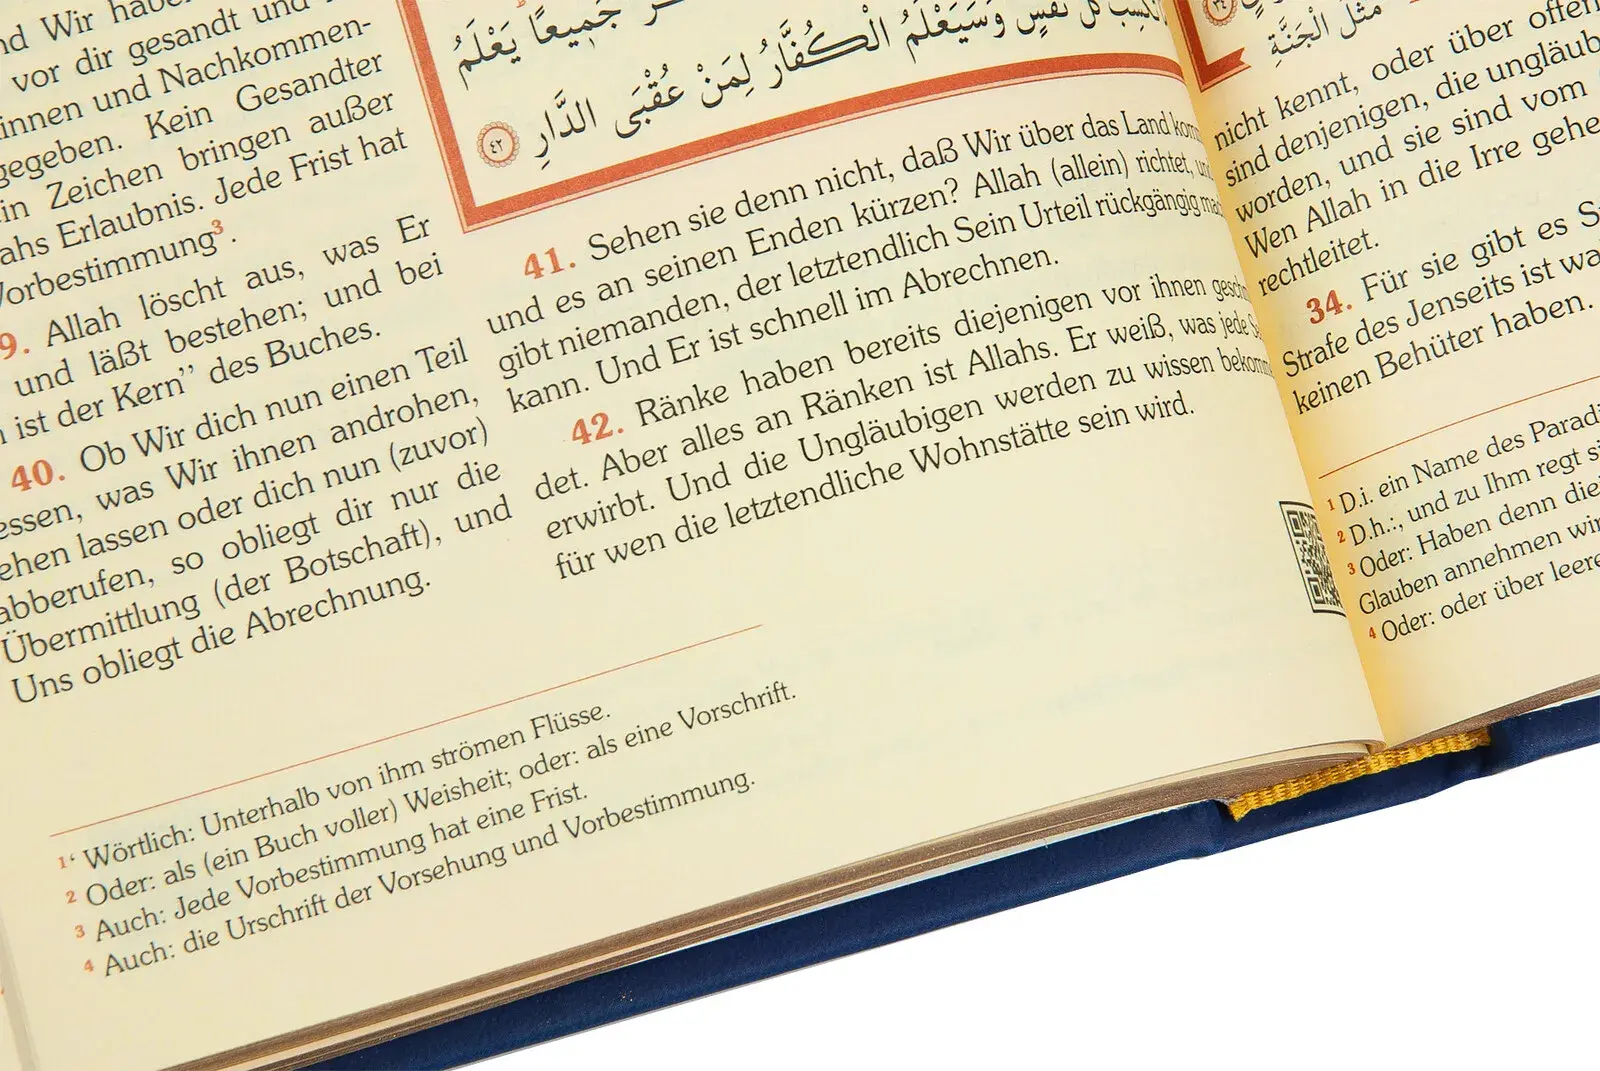 nd Wir habe
vor dir gesandt und
innen und Nachkommen-
gegeben. Kein Gesandter
in Zeichen bringen außer
ahs Erlaubnis. Jede Frist hat
Vorbestimmung³.
9. Allah löscht aus, was Er
und läßt bestehen; und bei
ist der Kern” des Buches.
40. Ob Wir dich nun einen Teil
essen, was Wir ihnen androhen,
ehen lassen oder dich nun (zuvor)
abberufen, so obliegt dir nur die
Übermittlung (der Botschaft), und
Uns obliegt die Abrechnung.
جَمِيعًا يَعْلَمُ
تَكْسِبُ كُلُّ نَفْسٍ وَسَيَعْلَمُ الْكُفَّارُ لِمَنْ عُقْبَى الدَّارِ ٤٢
41. Sehen sie denn nicht, daß Wir über das Land kom
und es an seinen Enden kürzen? Allah (allein) richtet, un
gibt niemanden, der letztendlich Sein Urteil rückgängig mac
kann. Und Er ist schnell im Abrechnen.
42. Ränke haben bereits diejenigen vor ihnen gesch
det. Aber alles an Ränken ist Allahs. Er weiß, was jede Se
erwirbt. Und die Ungläubigen werden zu wissen bekomm
für wen die letztendliche Wohnstätte sein wird.
1‘ Wörtlich: Unterhalb von ihm strömen Flüsse.
2 Oder: als (ein Buch voller) Weisheit; oder: als eine Vorschrift.
3 Auch: Jede Vorbestimmung hat eine Frist.
4 Auch: die Urschrift der Vorsehung und Vorbestimmung.
٣٤
مَثَلُ الْجَنَّةِ
nicht kennt, oder über offen
sind denjenigen, die ungläub
worden, und sie sind vom
Wen Allah in die Irre gehe
rechtleitet.
34. Für sie gibt es S
Strafe des Jenseits ist wa
keinen Behüter haben.
1 D.i. ein Name des Paradi
2 D.h.:, und zu Ihm regt si
3 Oder: Haben denn die
Glauben annehmen wir
4 Oder: oder über leere